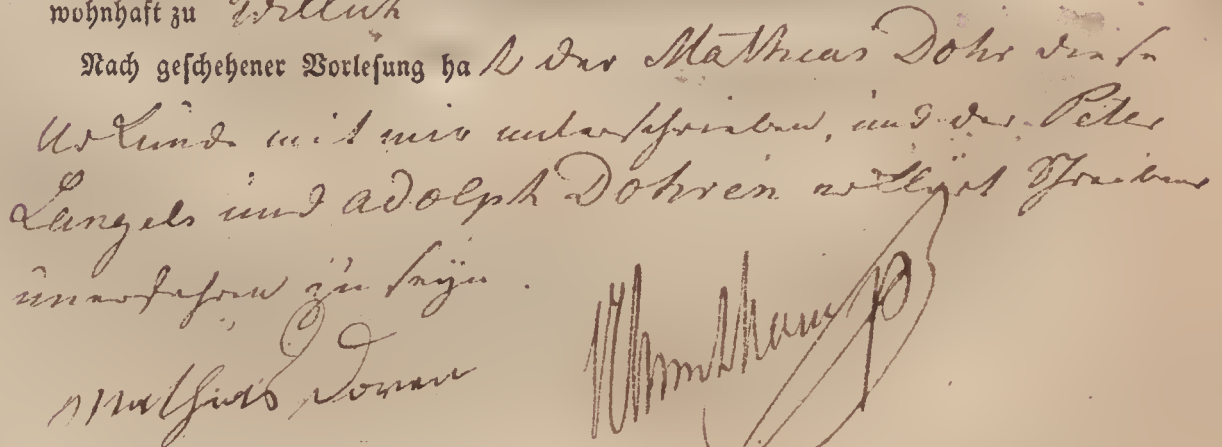 wohnhaft zu Willich
Nach geschehener Vorlesung hat der Mathias Dohr diese
Urkunde mit mir unterschrieben, und der Peter
Langels und Adolph Dohren erklärt Schreibens
unerfahren zu seyn.
Mathias Doren